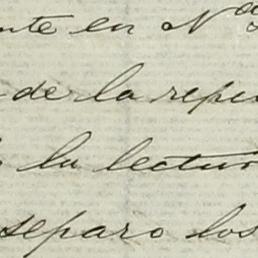 nte en N
de la repe
la lectur
separo los